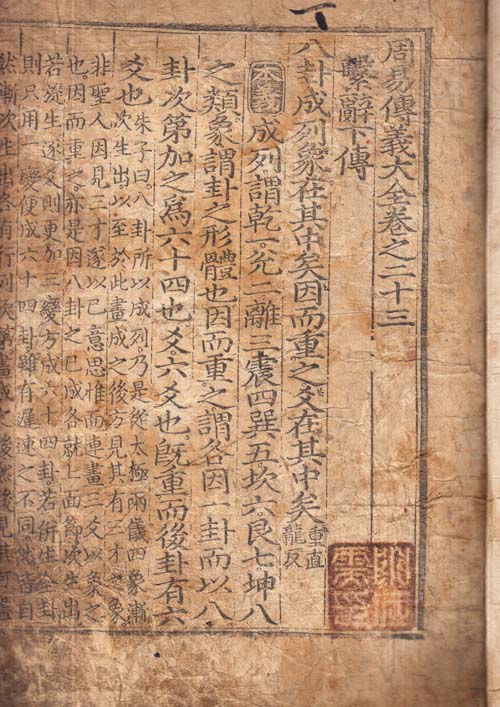 周易傳義大全卷之二十三
繫辭下傳
八卦成列象在其中矣因而重之爻在其中矣
重直
龍反
本義
成列謂乾一兊二離三震四巽五坎六艮七坤八
之類象謂卦之形體也因而重之謂各因一卦而以八
卦次第加之爲六十四也爻六爻也旣重而後卦有六
爻也
朱子曰八卦所以成列乃是從太極兩儀四象漸
次生出以至於此畫成之後方見其有三才之象
非聖人因見三才遂以已意思惟而連畫三爻以象之
也因而重之亦是因八卦之已成各就上面節次生出
若旋生逐爻則更加三變方成六十四卦若併生全卦
則只用一變便成六十四卦雖有遲速之不同然皆自
然漸次生出各有行列次第畫成之後然後見其可盡